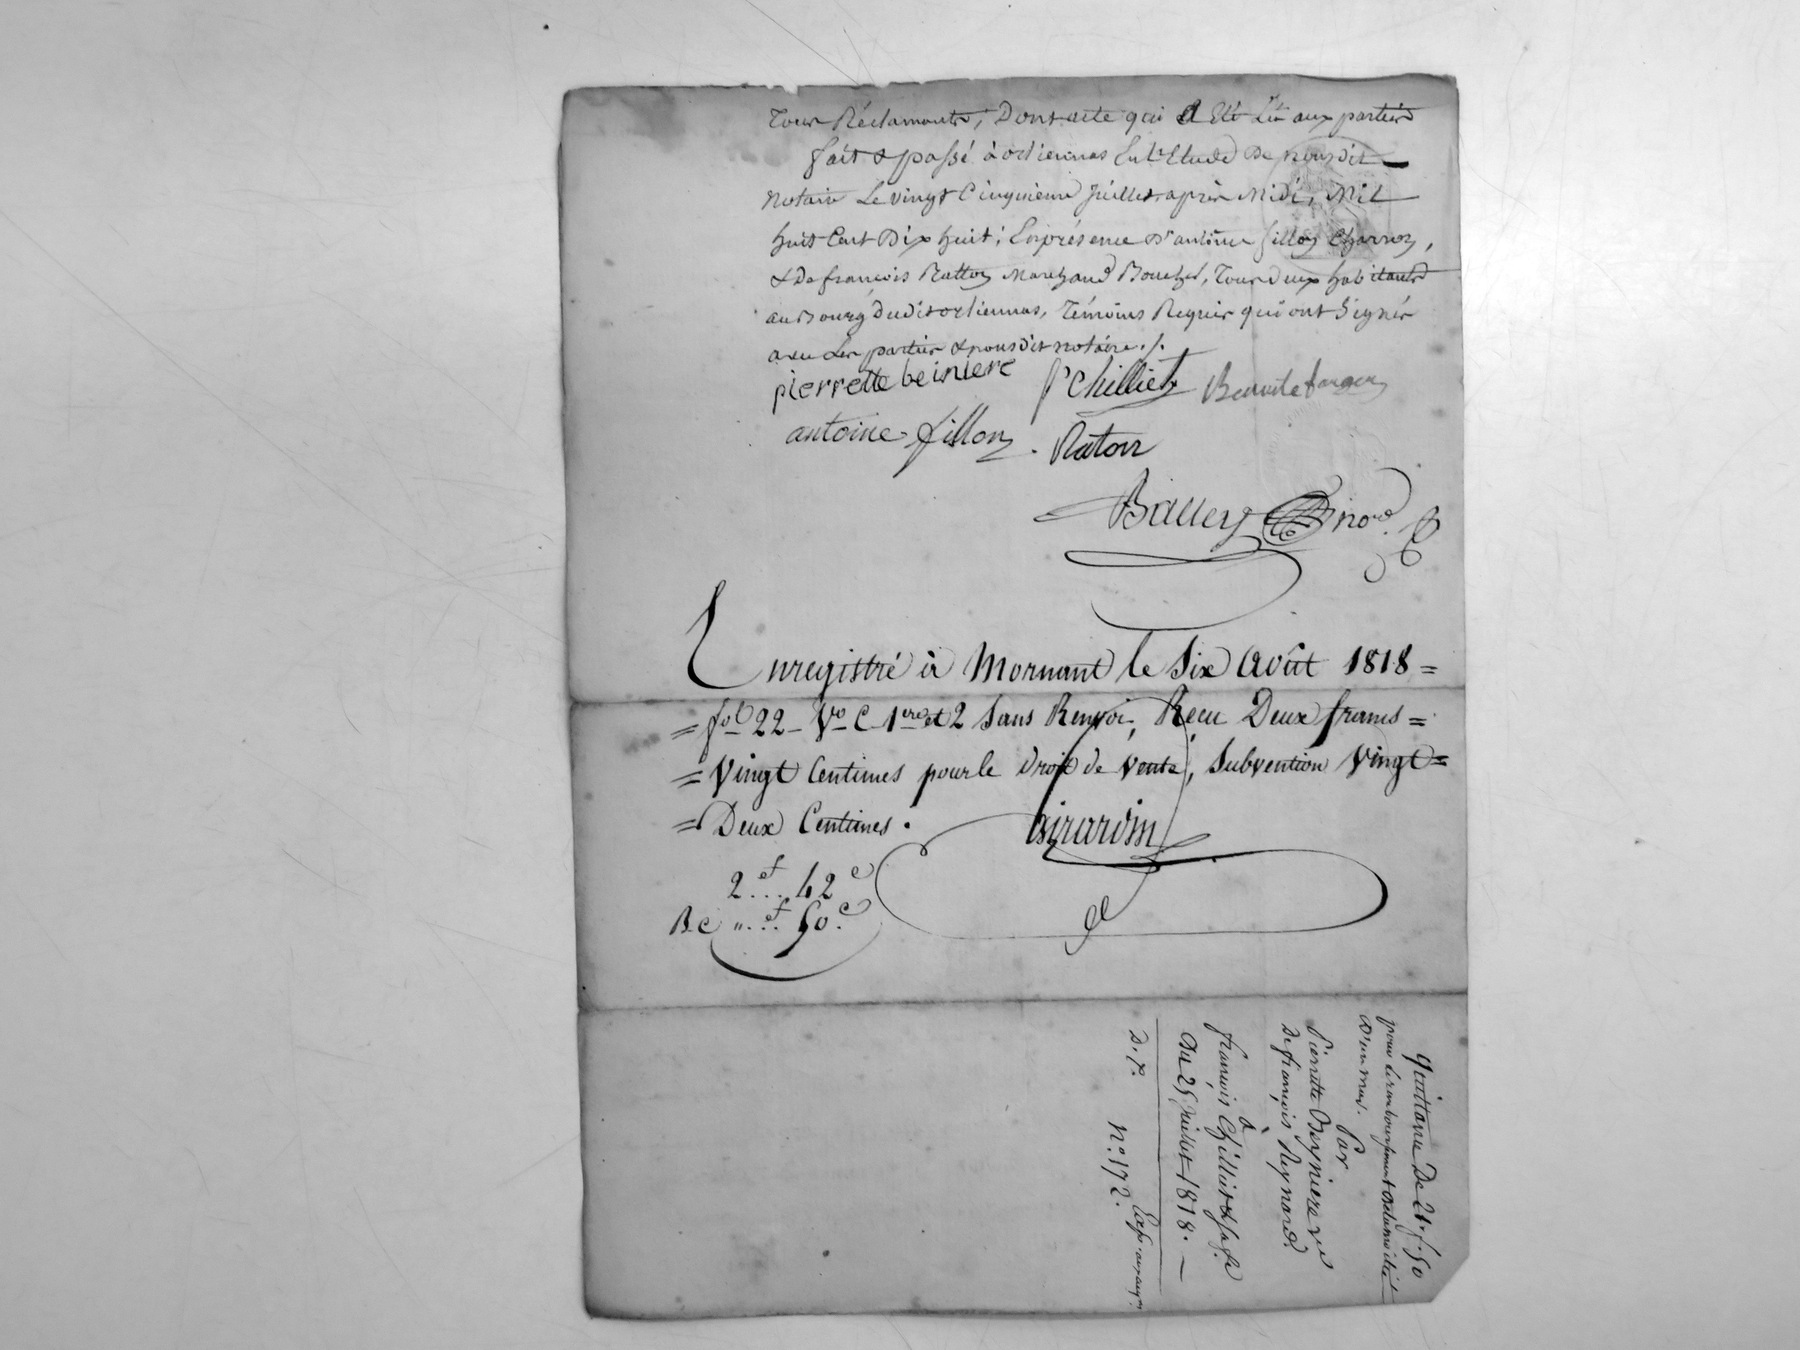 Tous Réclamants, Dont acte qui a Eté Lû aux parties
fait & passé à orliennas En L'Etude De nous dit
Notaire Le vingt Cinquieme Juillet après Midi, Mil
huit Cent Dix huit; En présence d'antoine fillon Charron,
& De françois Ratton Marchand Boucher, Tous deux habitants
au Bourg dudit orliennas, Témoins Requis qui ont Signés
avec Les parties & nous dit notaire ./.
pierrette beiniere f chilliet Benoite farges
antoine fillon Raton
Balley no.re
Enregistré à Mornant le six Août 1818 =
= fo 22 Vo C 1ere et 2 Sans Renvoi; Reçu Deux francs =
= Vingt Centimes pour le droit de Vente, Subvention Vingt =
= Deux Centimes.
Girardin
2 f 42 c
B.c „ f 50 c
Quittance De 21.f. 50
pour Le remboursement
Par
Pierrette Beyniere ve
De françois Reynard
à
françois Chilliet & sa fe
Du 25 Juillet 1818. —
D. P.
No. 172.